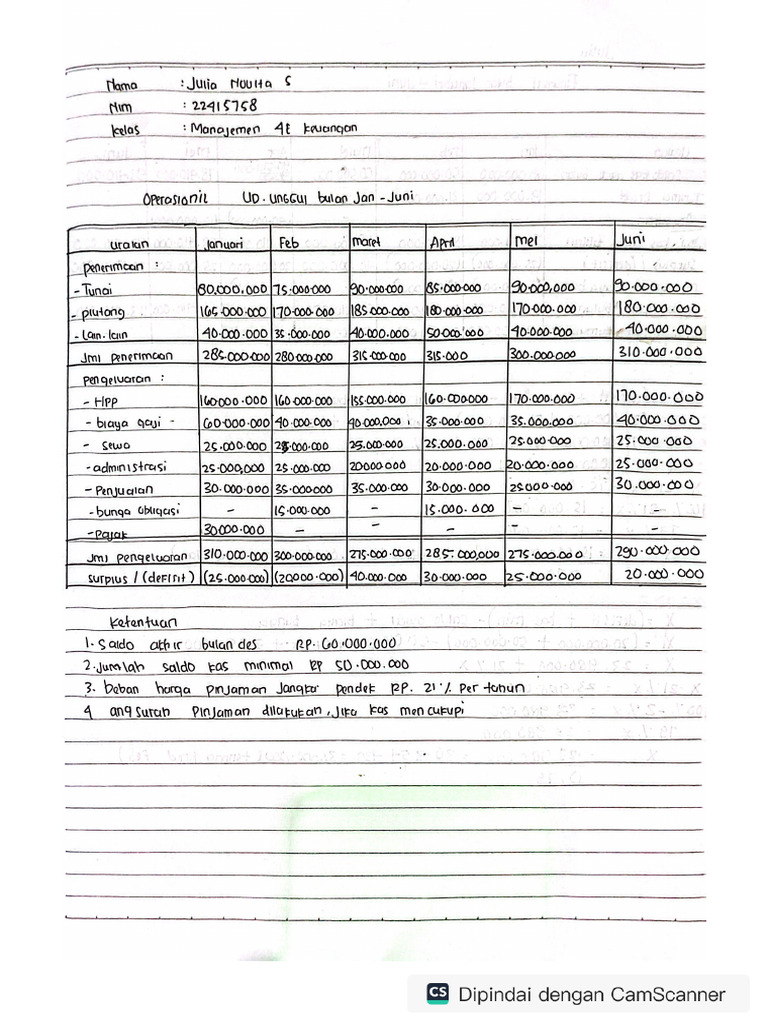 Nama : Julia Novita S
Nim : 22415758
Kelas : Manajemen 4E Keuangan
Operasionil UD. UNGGUL bulan Jan - Juni
uraian Januari Feb maret April Mei Juni
penerimaan :
- Tunai 80.000.000 75.000.000 90.000.000 85.000.000 90.000.000 90.000.000
- piutang 165.000.000 170.000.000 185.000.000 180.000.000 170.000.000 180.000.000
- Lain-lain 40.000.000 35.000.000 40.000.000 50.000.000 40.000.000 40.000.000
Jml penerimaan 285.000.000 280.000.000 315.000.000 315.000 300.000.000 310.000.000
pengeluaran :
- HPP 160.000.000 160.000.000 155.000.000 160.000.000 170.000.000 170.000.000
- biaya gaji - 60.000.000 40.000.000 40.000.000 35.000.000 35.000.000 40.000.000
- sewa 25.000.000 25.000.000 25.000.000 25.000.000 25.000.000 25.000.000
- administrasi 25.000.000 25.000.000 20000.000 20.000.000 20.000.000 25.000.000
- Penjualan 30.000.000 35.000.000 35.000.000 30.000.000 25000.000 30.000.000
- bunga obligasi - 15.000.000 - 15.000.000 - -
- Pajak 30000.000 - - - - -
Jml pengeluaran 310.000.000 300.000.000 275.000.000 285.000.000 275.000.000 290.000.000
surplus / (defisit) (25.000.000) (20.000.000) 40.000.000 30.000.000 25.000.000 20.000.000
Ketentuan
1. Saldo akhir bulan des RP. 60.000.000
2. Jumlah saldo kas minimal RP 50.000.000
3. beban harga pinjaman jangka pendek RP. 21% Per tahun
4 angsuran pinjaman dilakukan, jika kas mencukupi
CS Dipindai dengan CamScanner